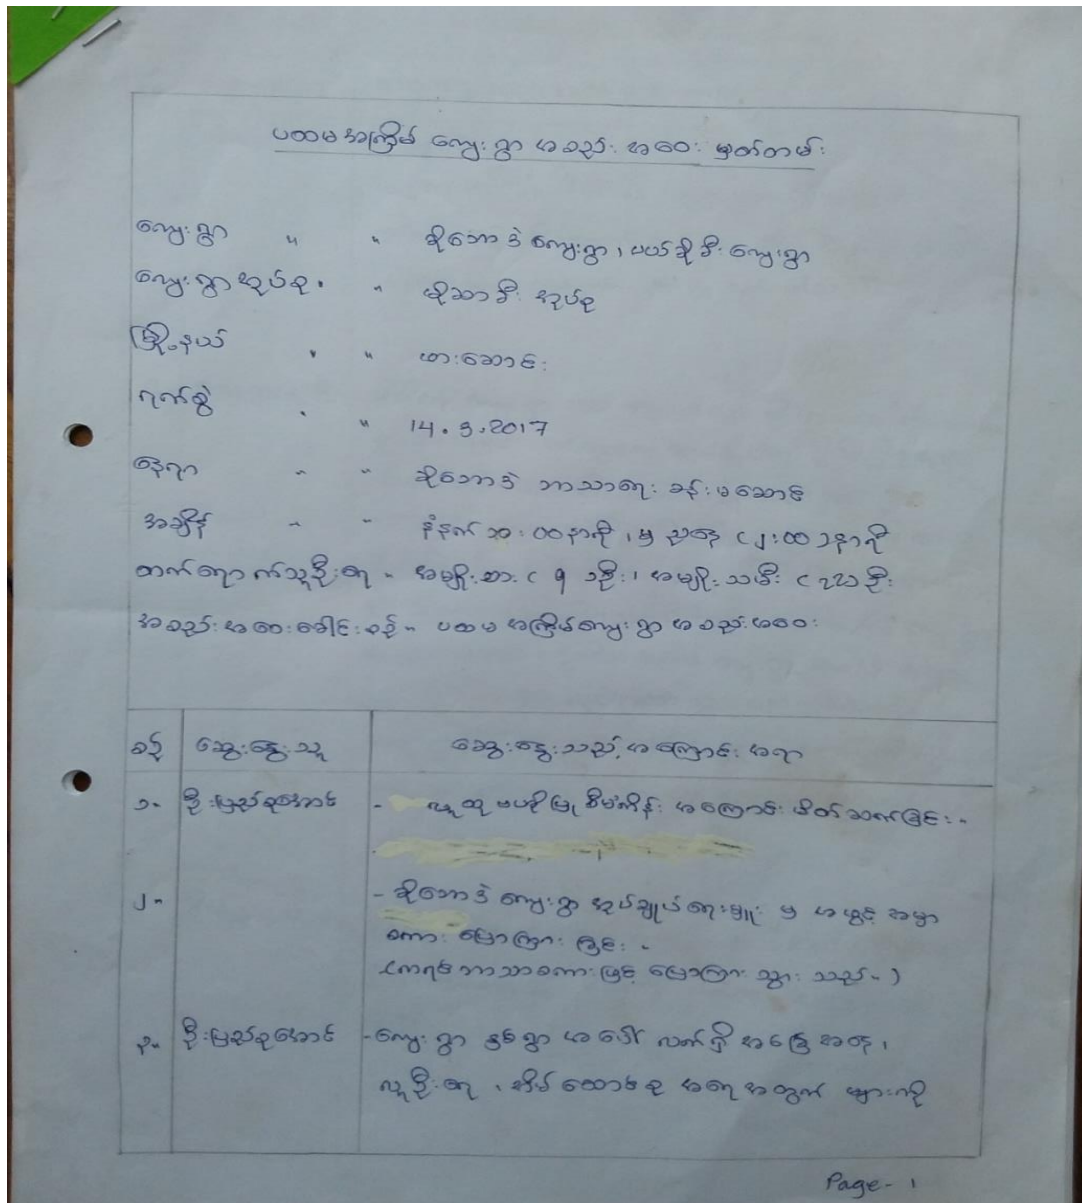 ပထမအကြိမ် ကျေးရွာ အစည်းအဝေး မှတ်တမ်း
ကျေးရွာ " " ဆိုဘောဒဲ ကျေးရွာ၊ ပယ်ဆိုခီး ကျေးရွာ
ကျေးရွာအုပ်စု " အုပ်စု
မြို့နယ် " " ဖားဆောင်း
ရက်စွဲ " " 14.3.2017
နေရာ " " ဆိုဘောဒဲ ဘာသာရေး ခန်းမဆောင်
အချိန် " " နံနက် ၁၁:၀၀ နာရီ ၊ မှ ညနေ (၂:၀၀) နာရီ
တက်ရောက်သူဦးရေ " အမျိုးသား ( ၅ ) ဦး၊ အမျိုးသမီး ( ) ဦး
အစည်းအဝေးခေါင်းစဉ် " ပထမအကြိမ်ကျေးရွာ အစည်းအဝေး
စဉ် ဆွေးနွေးသူ ဆွေးနွေးသည့် အကြောင်းအရာ
၁။ ဦးပြည်စုအောင် - လူထုဗဟိုပြု စီမံကိန်း အကြောင်း မိတ်ဆက်ခြင်း။
၂။ - ဆိုဘောဒဲ ကျေးရွာ အုပ်ချုပ်ရေးမှူး မှ အဖွင့် အမှာ
စကား ပြောကြားခြင်း။
(ကရင်ဘာသာစကားဖြင့် ပြောကြားသွားသည်။)
၃။ ဦးပြည်စုအောင် - ကျေးရွာ နှစ်ရွာ အပေါ် လက်ရှိ အခြေအနေ၊
လူဦးရေ ၊ အိမ်ထောင်စု အရေအတွက် များကို
Page - 1